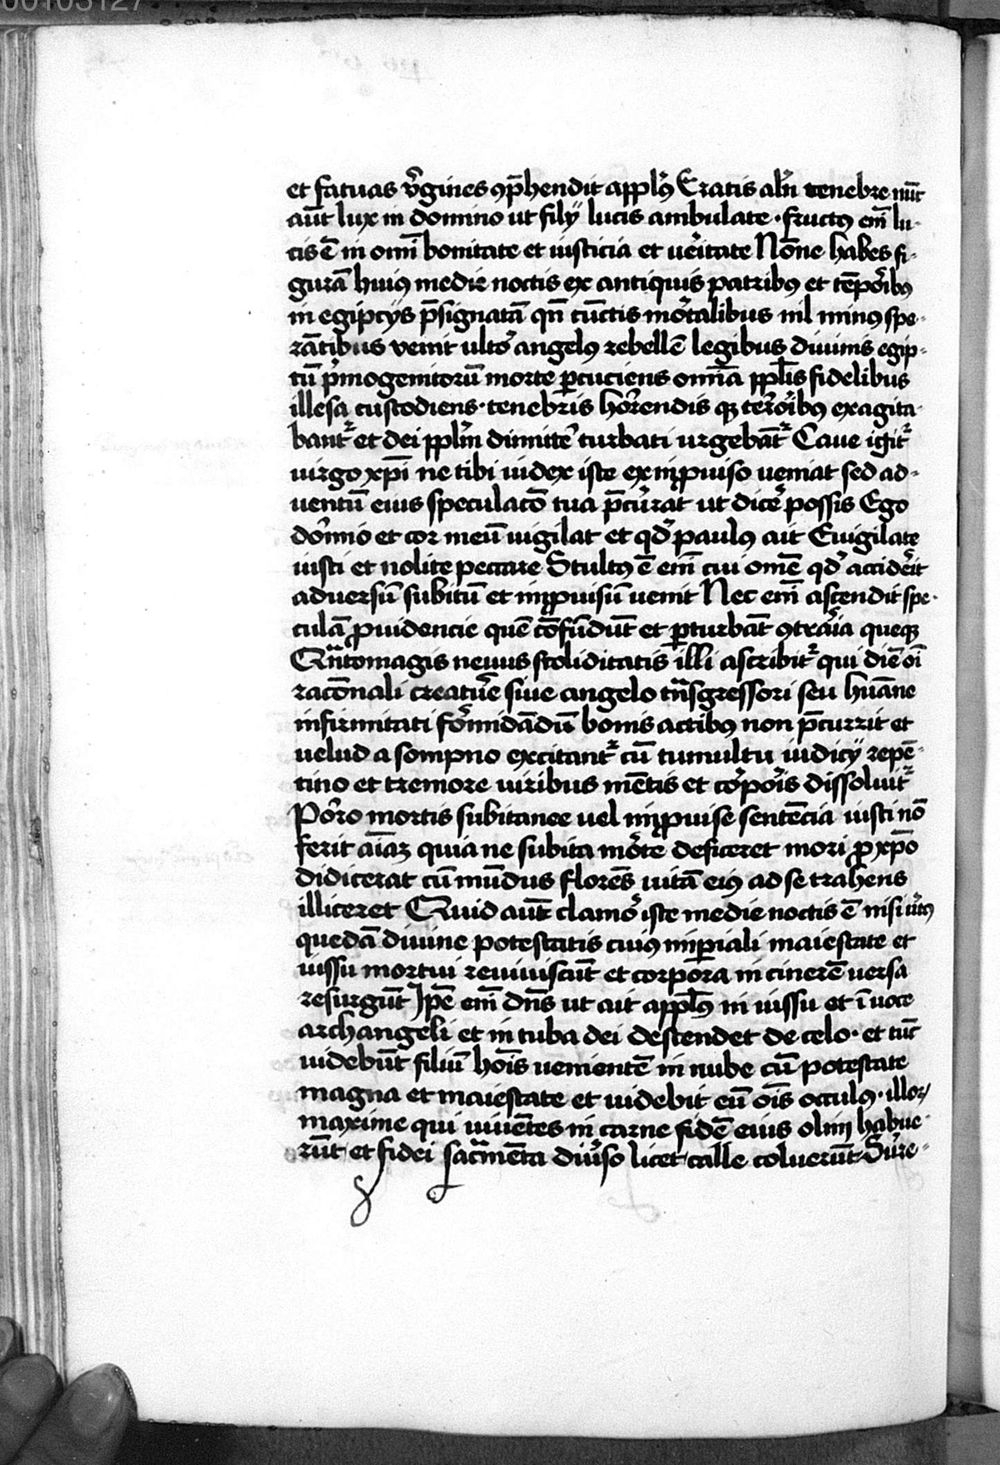 00103127
et fatuas v̓gines ꝯp̄hendit appl̓s Eratis al̓n tenebre nūc
aūt lux in domino ut filij lucis ambulate · fructꝯ em̄ lu-
cis ē in omī bonitate et iusticia et ueritate Nōne habes fi-
gurā huiꝯ medie noctis ex antiquis patribꝯ et tēpoꝛibꝯ
in egipcijs p̄signatā qn̄ cūctis moꝛtalibus nil minꝯ spe-
rātibus venit ultoꝛ angelꝯ rebellē legibus diuinis egip-
tū pͥmogenitorū morte ꝑcuciens omīa ppl̓is fidelibus
illesa custodiens · tenebris hoꝛrendis qꝫ terroribꝯ exagita-
bant᷑ et dei ppl̓m dimitte᷑ turbati urgebāt᷑ Caue igit᷑
virgo xp̄i ne tibi iudex iste ex inꝓuiso ueniat sed ad-
uentū eius speculacō tua p̄currat ut dicē possis Ego
dormio et cor meū uigilat et qd̓ paulꝯ ait Euigilate
iusti et nolite peccare Stultꝯ ē em̄ cui omē qd̓ acciderit
aduersū subitū et inꝓuisū uenit Nec em̄ ascendit spe-
culā ꝓuidencie quē cōfūdūt et ꝑturbāt ꝯtraria queqꝫ
Qͣntomagis neuus stoliditatis illi ascribit᷑ qui diē oī
racōnali creature siue angelo tͣnsgressori seu huāne
infirmitati foꝛmidādū bonis actibꝯ non p̄currit et
uelud a sompno excitant᷑ cū tumultu iudicij repē-
tino et tremore uiribus mētis et coꝛpoꝛis dissoluit᷑
Poꝛro mortis subitanee uel inꝓuise sentēcia iusti nō
ferit aīaꝫ quia ne subita moꝛte deficeret mori ꝓ xp̄o
didicerat cū mūdus florēs uitā eiꝯ ad se trahens
illiceret Quid aūt clamoꝛ iste medie noctis ē nisi ūtꝯ
quedā diuine potestatis cuiꝯ imꝑiali maiestate et
iussu mortui reuiuiscūt et corpora in cinerē versa
resurgūt Ip̄e em̄ dn̄s ut ait appl̓s in iussu et ī uoce
archangeli et in tuba dei descendet de celo · et tūc
uidebūt filiū hoīs uenientē in nube cū potestate
magna et maiestate et uidebit eū oīs occulꝯ · illoꝝ
maxime qui uiuētes in carne fidē eius olim habue-
rūt et fidei sacͣmēta diūso licet calle coluerūt Surre-